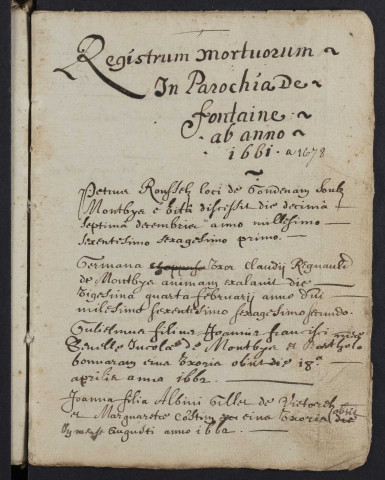 Registrum mortuorum
In Parochia De
fontaine
ab anno
1661. a 1678
Petrus Roussel loci de
Montbye è vità discessit die decimà
septimà decembris anno millesimo
sexentesimo sexagesimo primo.
Germana uxor Claudij Regnauld
de Montbye animam exalavit die
vigesima quarta februarij anno Dni
milesimo sexentesimo sexagesimo secundo.
Gulielmus filius francisci
Incolae de Montbye et
eius Uxoris obiit die 18.a
aprilis anno 1662.
Joanna filia Albini Gillet de
et Margaretae eius Uxoris obiit die
mensis Augusti anno 1662